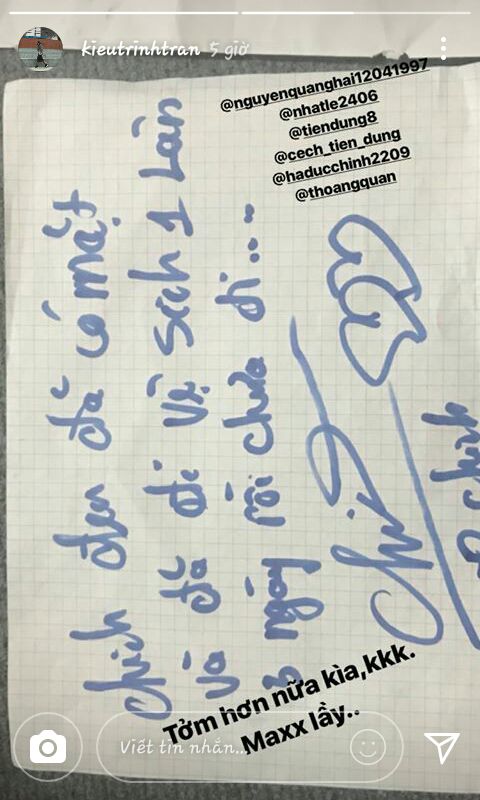 kieutrinhtran 5 giờ
@nguyenquanghai12041997
@nhatle2406
@tiendung8
@cech_tien_dung
@haducchinh2209
@thoangquan
Chinh đen đã có mặt
Và đã đi vệ sinh 1 lần
3 ngày rồi chưa đi....
Chinh
Tởm hơn nữa kìa,kkk.
Maxx lầy..
Viết tin nhắn...